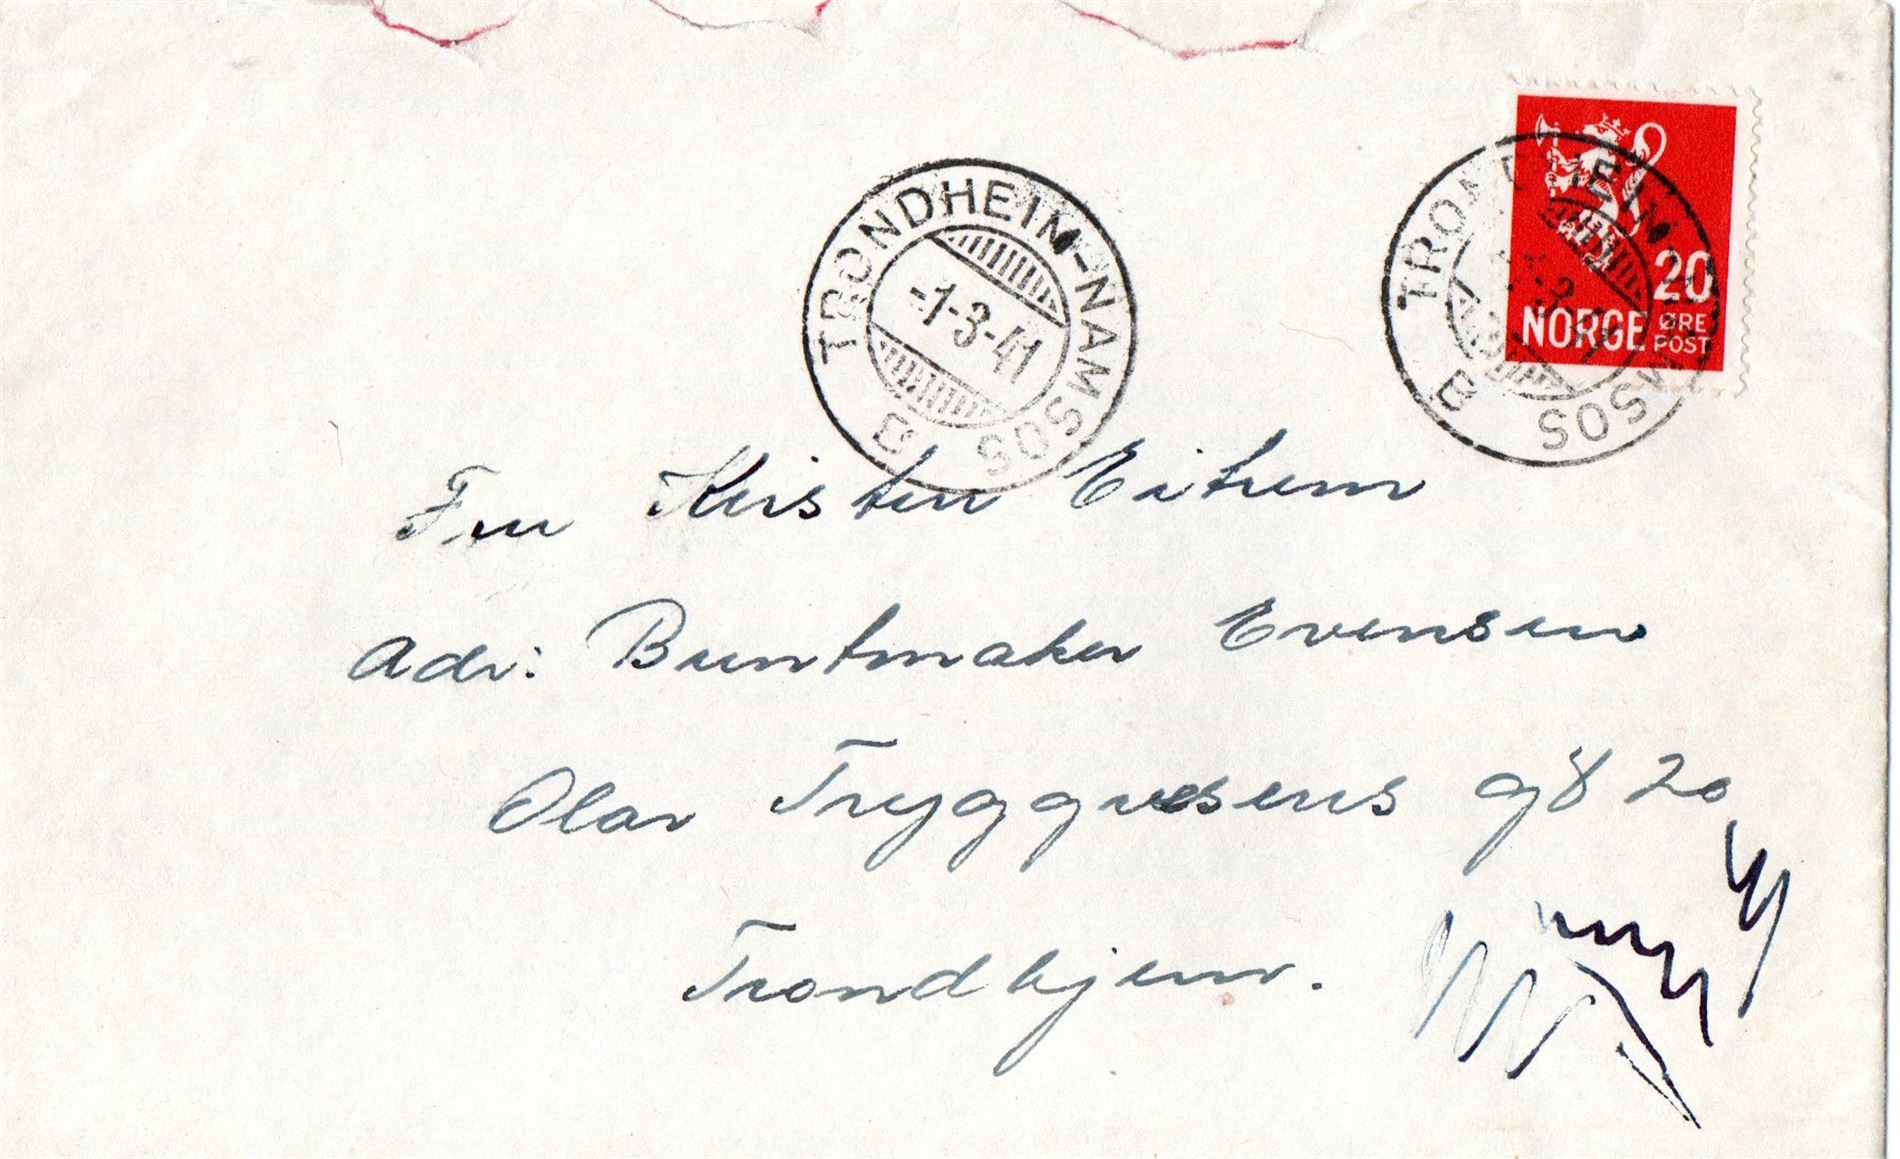 TRONDHEIM-NAMSOS
-1-3-41
B
TRONDHEIM-NAMSOS
B
20
NORGE ØRE
POST
Fru Kirsten Eitrem
Adr: Buntmaker Evensen
Olav Tryggvesens gt 20
Trondhjem.